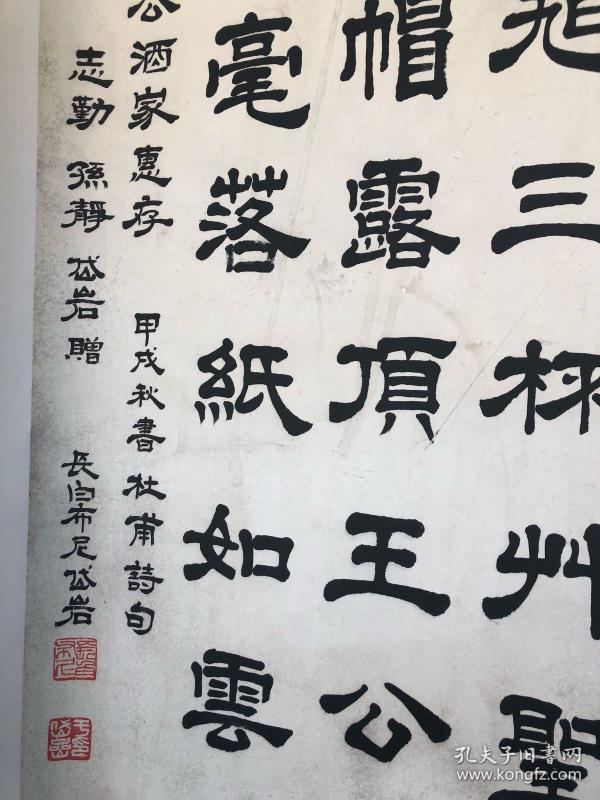 旭三杯艸聖
帽露頂王公
毫落紙如雲
公酒家惠存 甲戌秋書杜甫詩句
志勤 孫靜 岱岩贈 長白布尼岱岩
孔夫子旧书网
www.kongfz.com